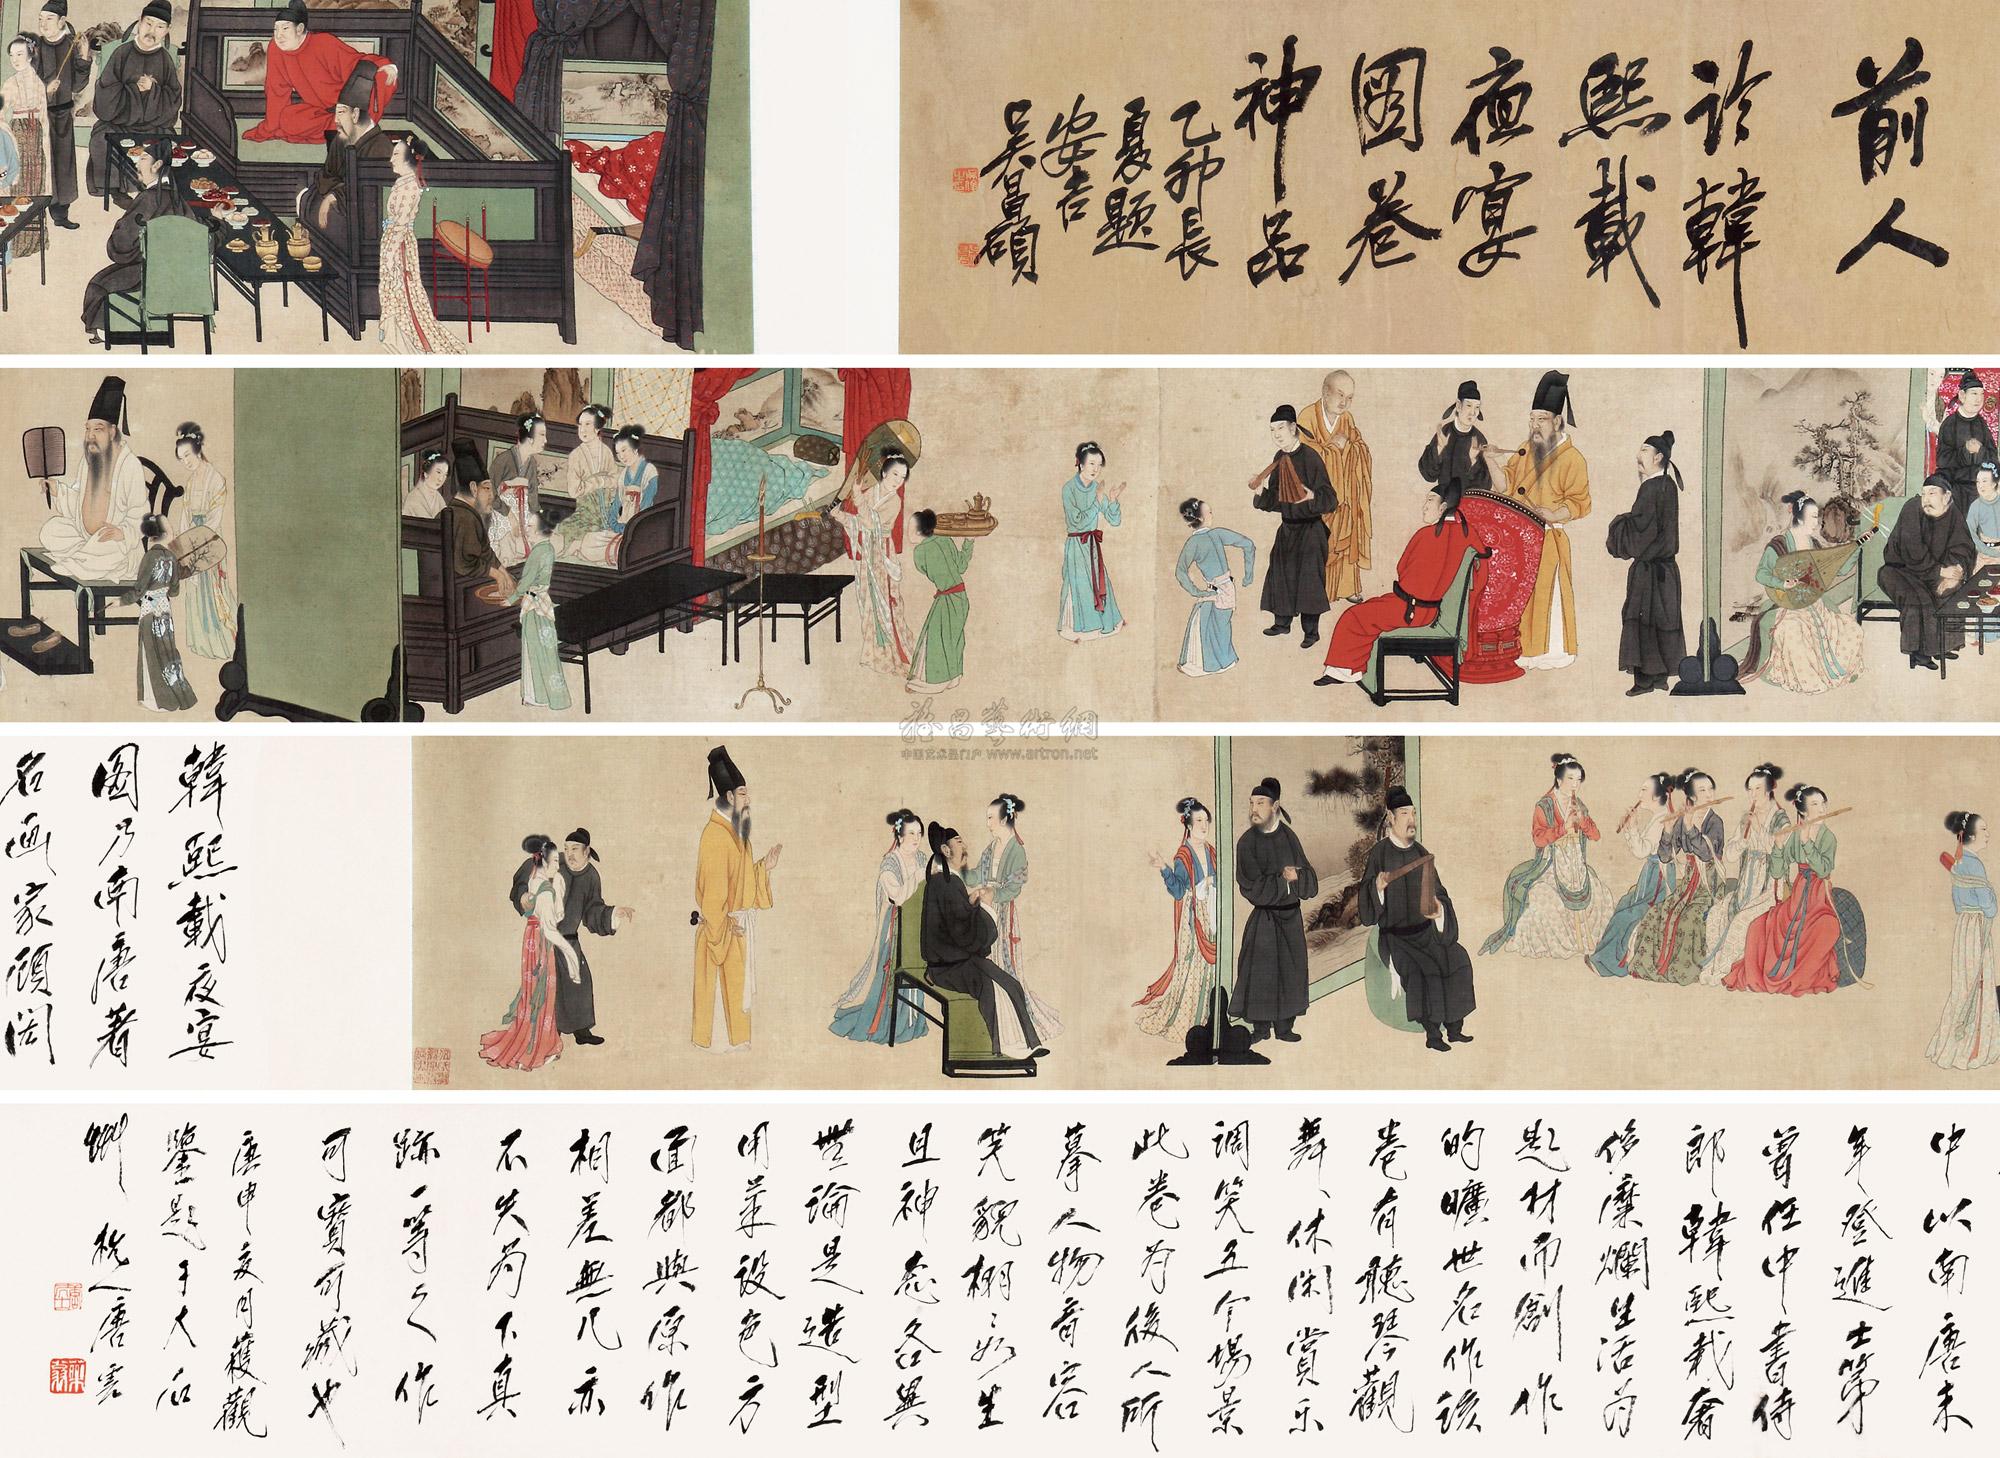 前人
韓
熙載
夜宴
圖卷
神品
乙卯長
夏題
安吉
吳昌碩
雅昌藝術網
中国艺术品门户 www.artron.net
韓熙載夜宴
图乃南唐著
名画家顾闳
中以南唐末
年登進士第
曾任中書侍
郎韓熙载奢
侈糜爛生活为
题材而創作
的曠世名作该
卷有聽琴觀
舞、休闲賞乐
调笑五个場景
此卷为後人所
摹人物音容
笑貌栩々如生
且神态各異
無論是造型
用筆設色方
面都與原作
相差無几亦
不失为下真
跡一等之作
可寶可藏也
庚申夏月獲觀
鑒題于大石
杭人唐雲